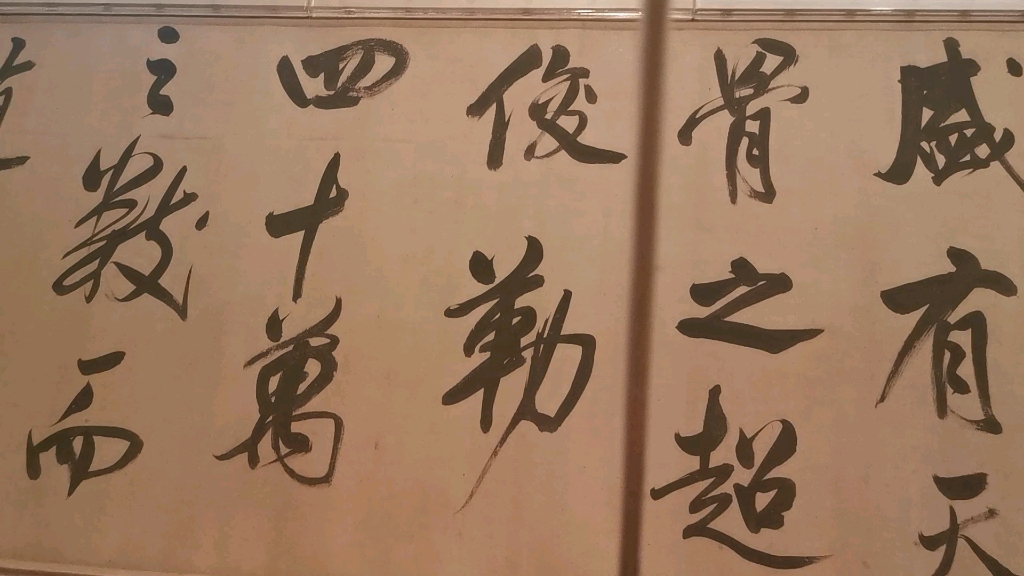 盛有天
骨之超
俊勒
四十萬
之數而